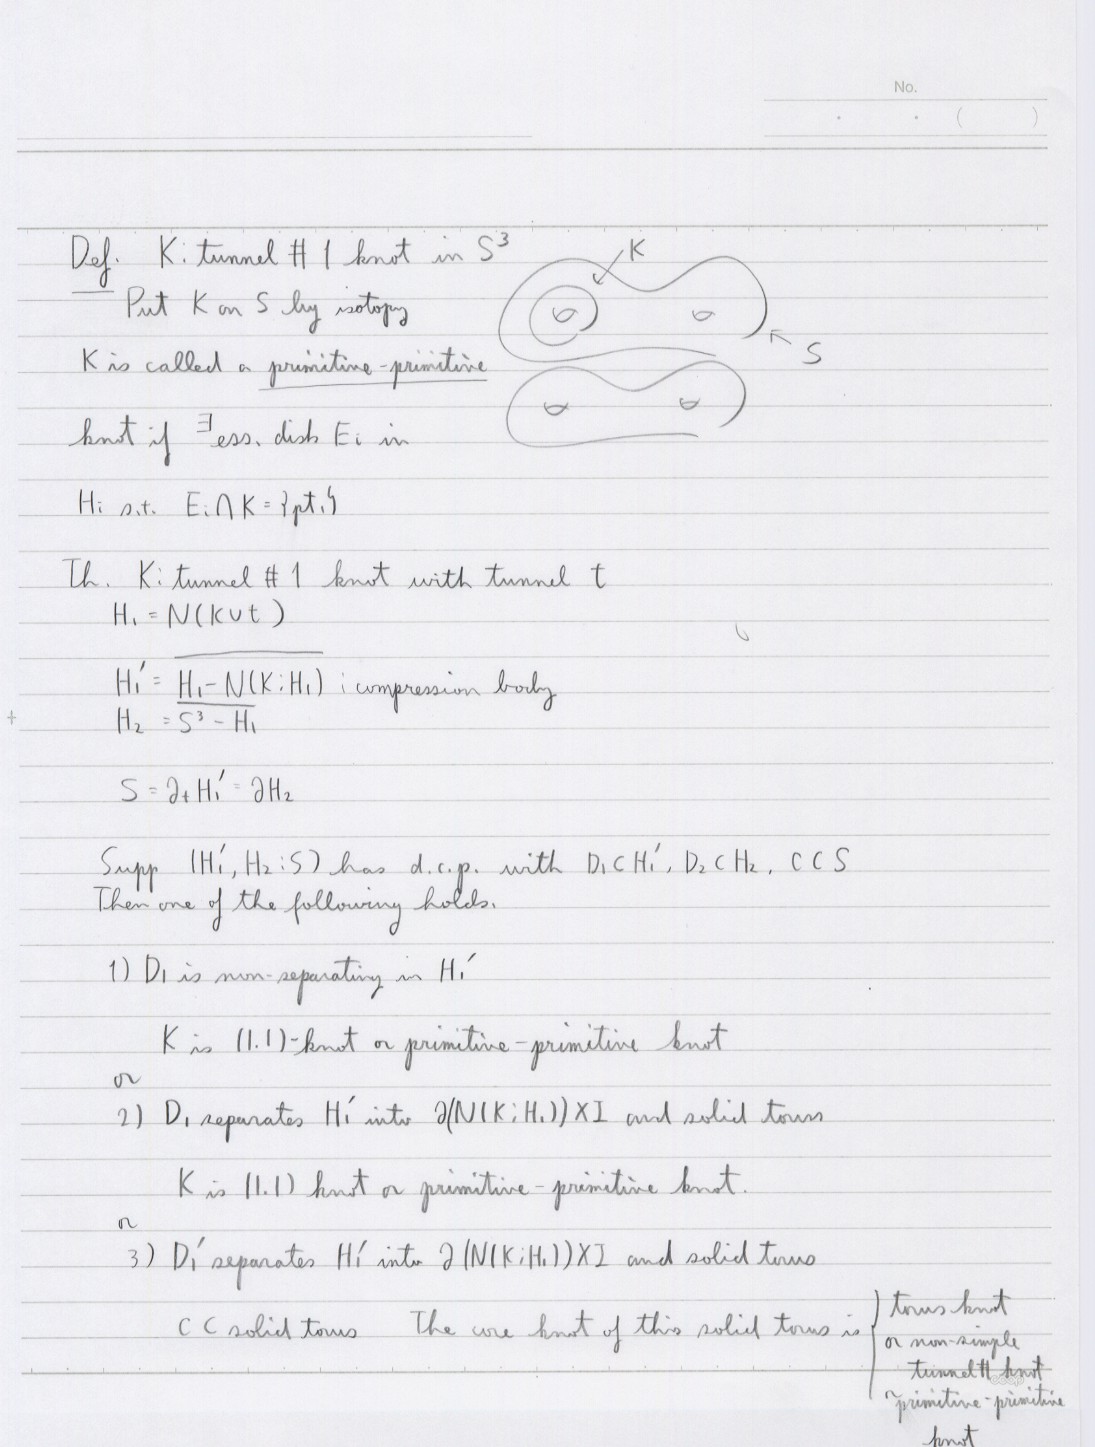 No.
Def. K: tunnel # 1 knot in S³
K
Put K on S by isotopy
S
K is called a primitive-primitive
knot if ∃ess. disk Ei in
Hi s.t. Ei∩K = {pt.}
Th. K: tunnel # 1 knot with tunnel t
H₁ = N(K∪t)
H₁' = H₁-N(K:H₁) : compression body
H₂ = S³ - H₁
S = ∂₊H₁' = ∂H₂
Supp (H₁', H₂:S) has d.c.p. with D₁⊂H₁', D₂⊂H₂, C⊂S
Then one of the following holds.
1) D₁ is non-separating in H₁'
K is (1.1)-knot or primitive-primitive knot
or
2) D₁ separates H₁' into ∂(N(K:H₁))×I and solid torus
K is (1.1) knot or primitive-primitive knot.
or
3) D₁' separates H₁' into ∂(N(K:H₁))×I and solid torus
C⊂solid torus The core knot of this solid torus is
torus knot
or non-simple
tunnel # knot
primitive-primitive
knot